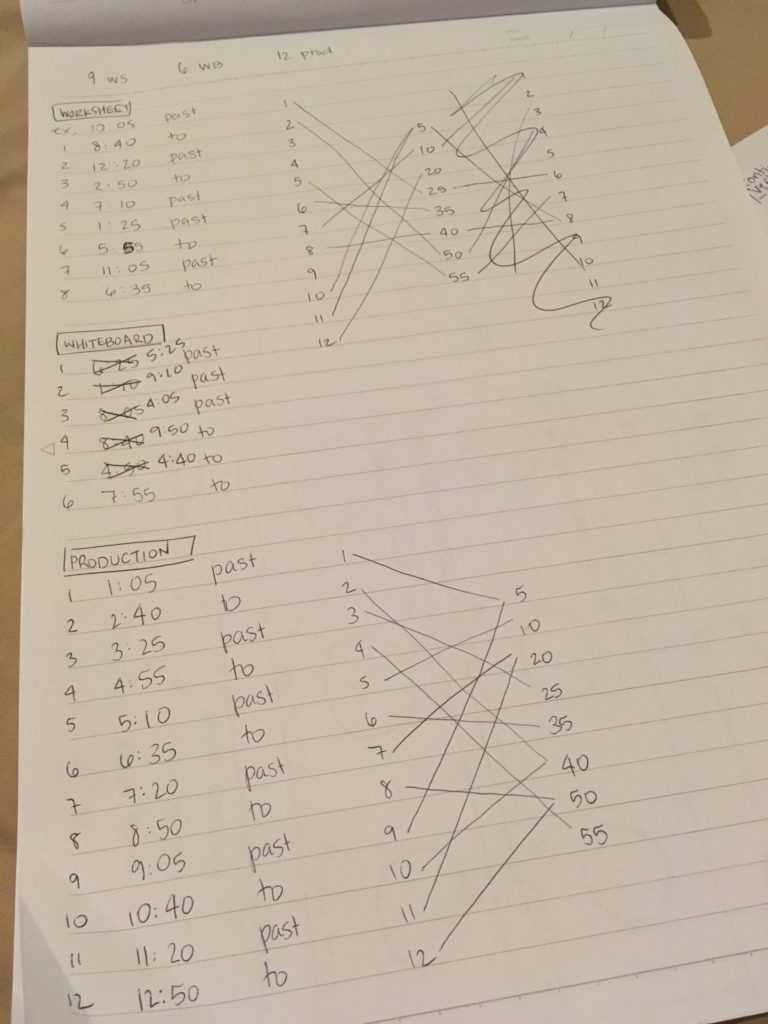 9 WS 6 WB 12 prod
WORKSHEET
ex. 12:05 past
1 8:40 to
2 12:20 past
3 2:50 to
4 7:10 past
5 1:25 past
6 5:55 to
7 11:05 past
8 6:35 to
1
2
3
4
5
6
7
8
9
10
11
12
5
10
20
25
35
40
50
55
2
3
4
5
6
7
8
9
10
11
12
WHITEBOARD
1 6:25 5:25 past
2 1:10 9:10 past
3 8:05 4:05 past
4 8:40 9:50 to
5 4:50 4:40 to
6 7:55 to
PRODUCTION
1 1:05 past
2 2:40 to
3 3:25 past
4 4:55 to
5 5:10 past
6 6:35 to
7 7:20 past
8 8:50 to
9 9:05 past
10 10:40 to
11 11:20 past
12 12:50 to
1
2
3
4
5
6
7
8
9
10
11
12
5
10
20
25
35
40
50
55